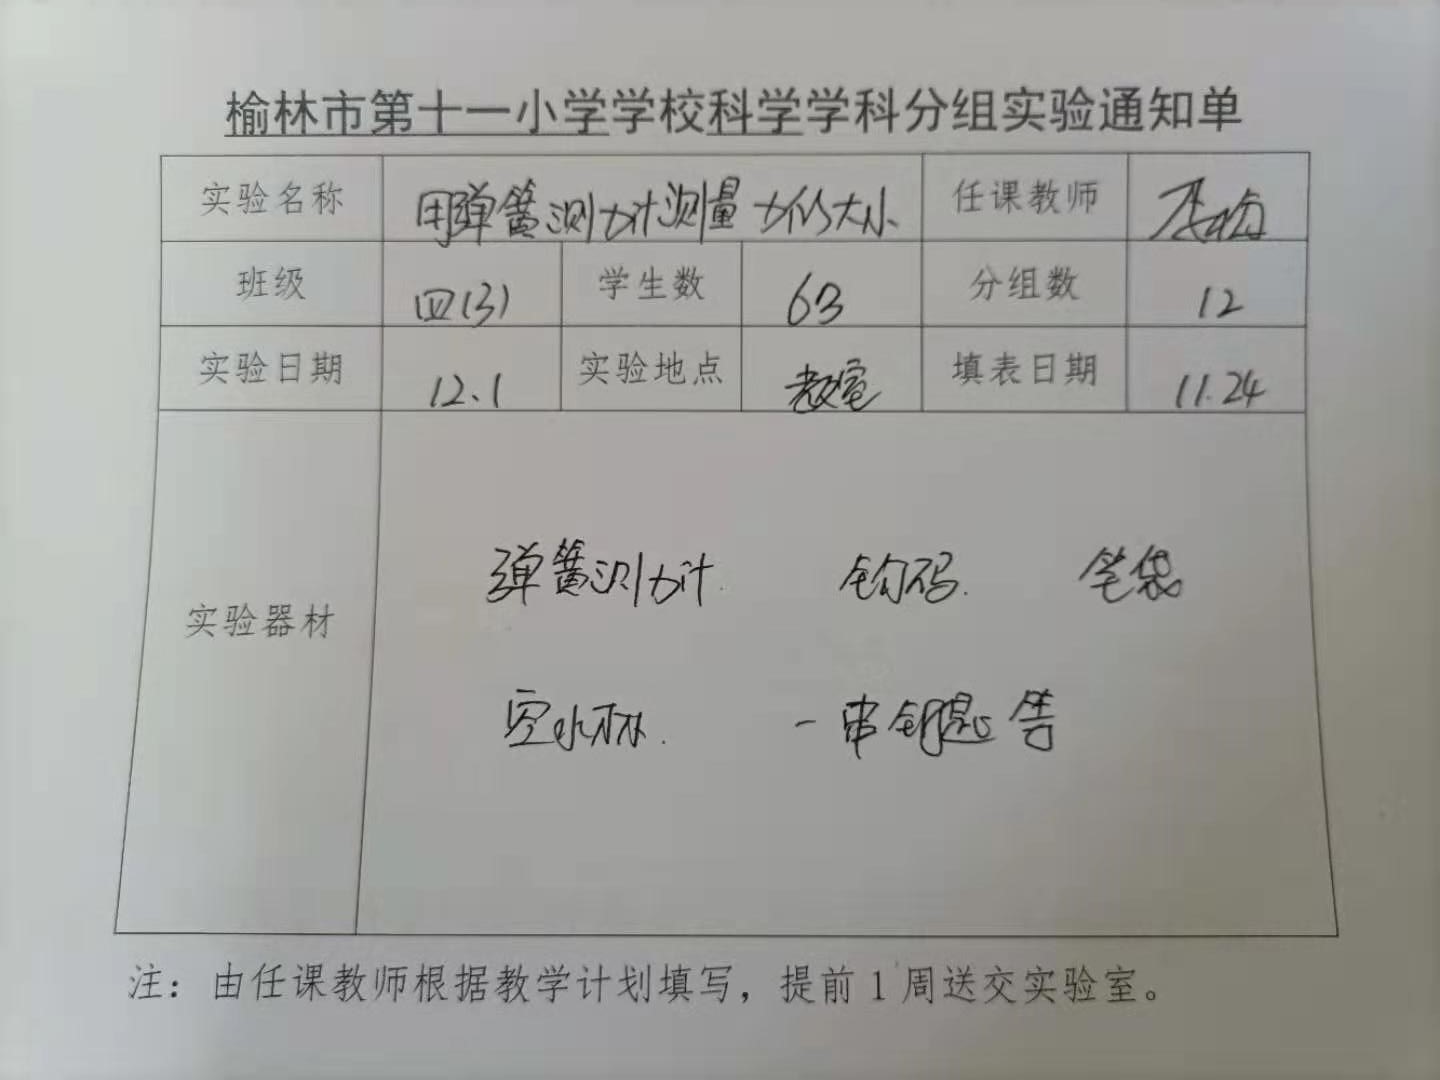 榆林市第十一小学学校科学学科分组实验通知单
实验名称 用弹簧测力计测量力的大小 任课教师
班级 四(3) 学生数 63 分组数 12
实验日期 12.1 实验地点 教室 填表日期 11.24
弹簧测力计. 钩码. 笔袋
实验器材
空水杯. 一串钥匙等
注：由任课教师根据教学计划填写，提前1周送交实验室。